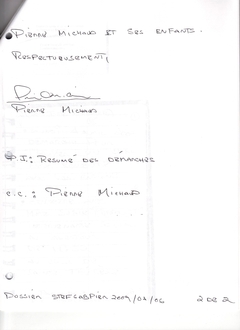 Pierre Michaud et ses enfants.
Respectueusement,
Pierre Michaud
P.J.: Résumé des démarches
c.c.: Pierre Michaud
Dossier 2009/01/06 2 de 2